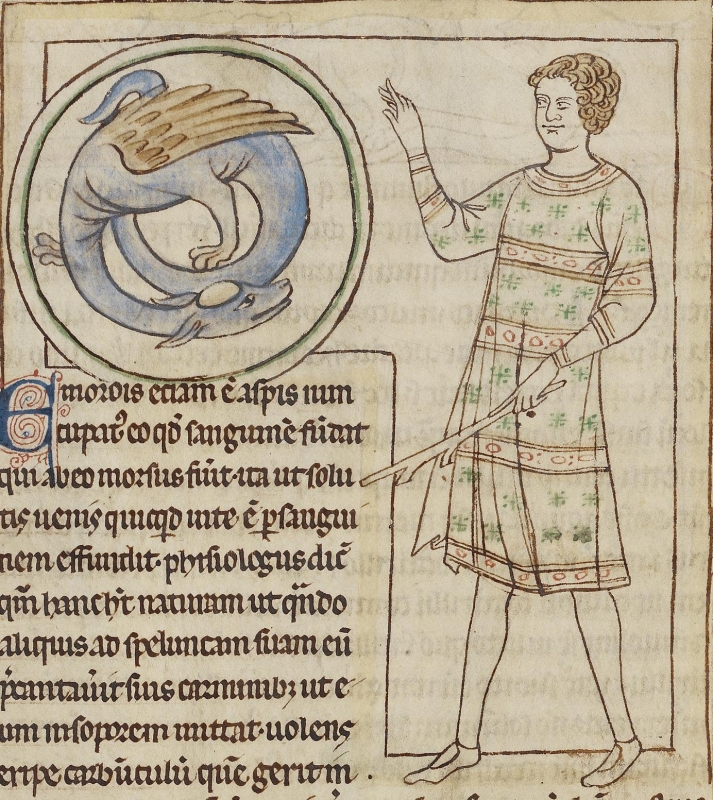 Emorois etiam ē aspis nun
cupat᷒ eo qđ sanguinē sudat
qui ab eo morsus fūit· ita ut solu
tis uenis quicqd uite ē ꝑ sangui
nem effundit· phisiologus dic̄
qm̄ hanc hꝫ naturam ut qn̄do
aliquis ad speluncam suam eū
p̄cantauit suis carminibꝫ ut e
um in soporem mittat· uolens
eripe carbūculū quē gerit in